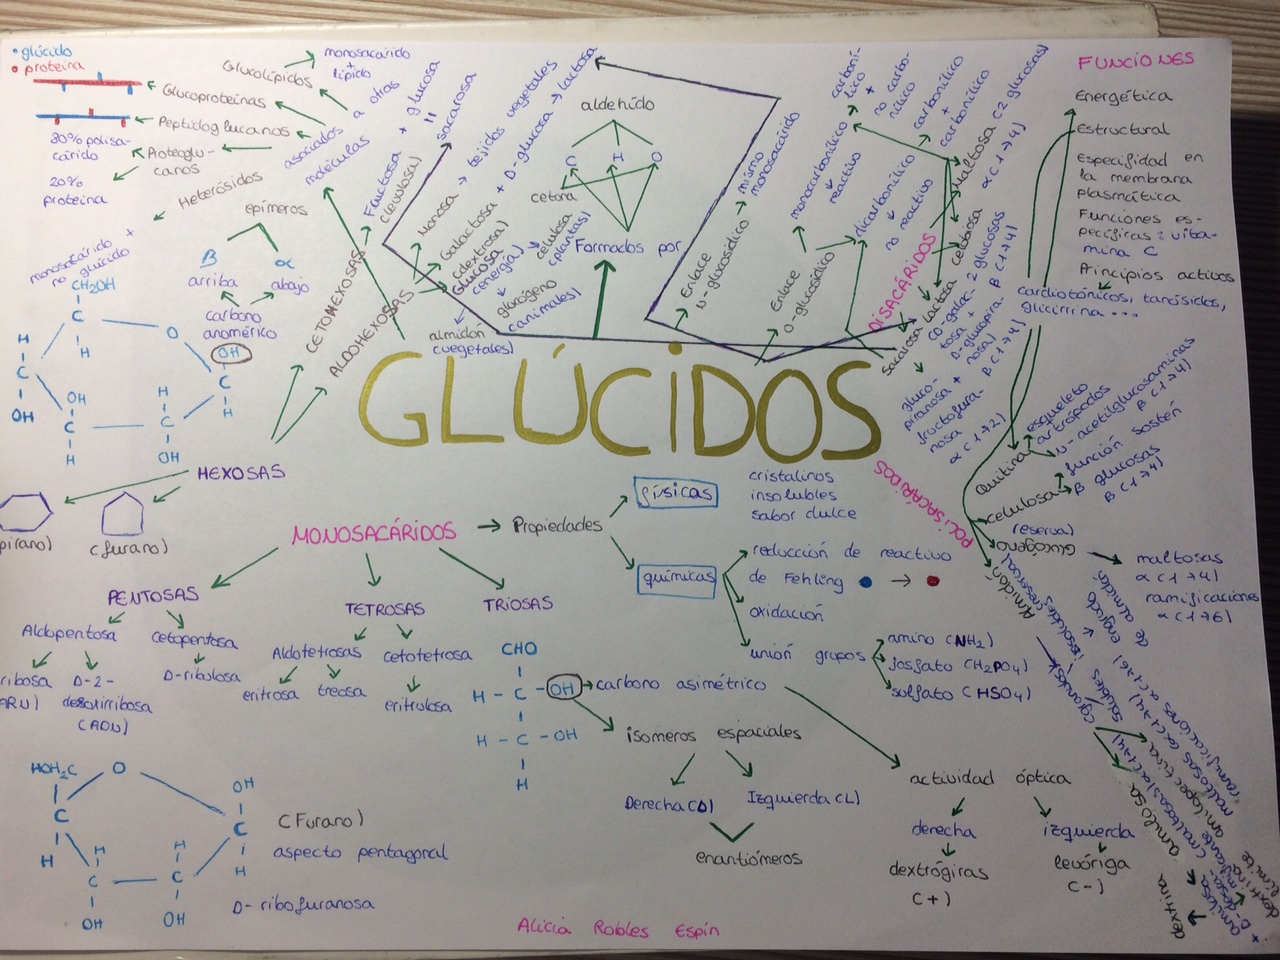 • glúcido
• proteina
Glucoproteínas
Peptidoglucanos
80% polisa-
cárido
20%
proteina
Proteoglu-
canos
Heterósidos
monosacárido +
no glúcido
Glucolípidos
monosacárido
+
lípido
asociados a otras
moléculas
epímeros
β
arriba
α
abajo
carbono
anomérico
CH2OH
C
O
H
H
C
OH
OH
C
H
H
C
OH
OH
C
H
HEXOSAS
(pirano)
(furano)
CETOHEXOSAS
Fructosa + glucosa
(levulosa) || sacarosa
ALDOHEXOSAS
Manosa → tejidos vegetales
Galactosa + D-glucosa → lactosa
(dextrosa)
Glucosa
(energía)
celulosa
(plantas)
glucógeno
(animales)
almidón
(vegetales)
aldehído
C H O
cetona
Formados por
GLÚCIDOS
Enlace
N-glucosídico
mismo
monosacárido
Enlace
O-glucosídico
monocarbonílico
↓
reactivo
carboní-
lico
+
no carbo-
nílico
dicarbonílico
↓
no reactivo
carbonílico
+
carbonílico
DISACÁRIDOS
Maltosa (2 glucosas)
α(1→4)
celobiosa
2 glucosas
β(1→4)
Lactosa
(D-galac-
tosa +
D-glucopira-
nosa)
β(1→4)
Sacarosa
gluco-
piranosa +
fructofura-
nosa
α(1→2)
FUNCIONES
Energética
Estructural
Especifidad en
la membrana
plasmática
Funciones es-
pecíficas: vita-
mina C
Principios activos
cardiotónicos, tanósidos,
glicirrina ...
POLISACÁRIDOS
Quitina
esqueleto
artrópodos
N-acetilglucosaminas
β(1→4)
celulosa
función sostén
β glucosas
β(1→4)
(reserva)
Glucógeno
maltosas
α(1→4)
ramificaciones
α(1→6)
Almidón
amilosa
amilopectina
dextrina
MONOSACÁRIDOS → Propiedades
físicas
cristalinos
insolubles
sabor dulce
químicas
reducción de reactivo
de Fehling • → •
oxidación
unión grupos
amino (NH2)
fosfato (H2PO4)
sulfato (HSO4)
PENTOSAS
Aldopentosa
ribosa
(ARN)
D-2-
desoxirribosa
(ADN)
Cetopentosa
D-ribulosa
TETROSAS
Aldotetrosas
eritrosa
treosa
cetotetrosa
eritrulosa
TRIOSAS
CHO
H - C - OH → carbono asimétrico
H - C - OH
H
isomeros espaciales
Derecha (D)
Izquierda (L)
enantiómeros
actividad óptica
derecha
dextrógiras
(+)
izquierda
levóriga
(-)
HOH2C
O
C
H
H
C
OH
H
C
OH
OH
C
H
(Furano)
aspecto pentagonal
D-ribofuranosa
Alicia Robles Espín